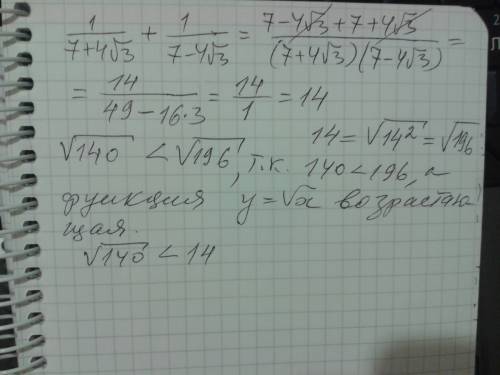 1/(7+4√3) + 1/(7-4√3) = (7-4√3+7+4√3)/((7+4√3)(7-4√3)) =
= 14/(49-16·3) = 14/1 = 14
14 = √14² = √196
√140 < √196, т.к. 140<196, а
функция y=√x возрастаю
щая.
√140 < 14